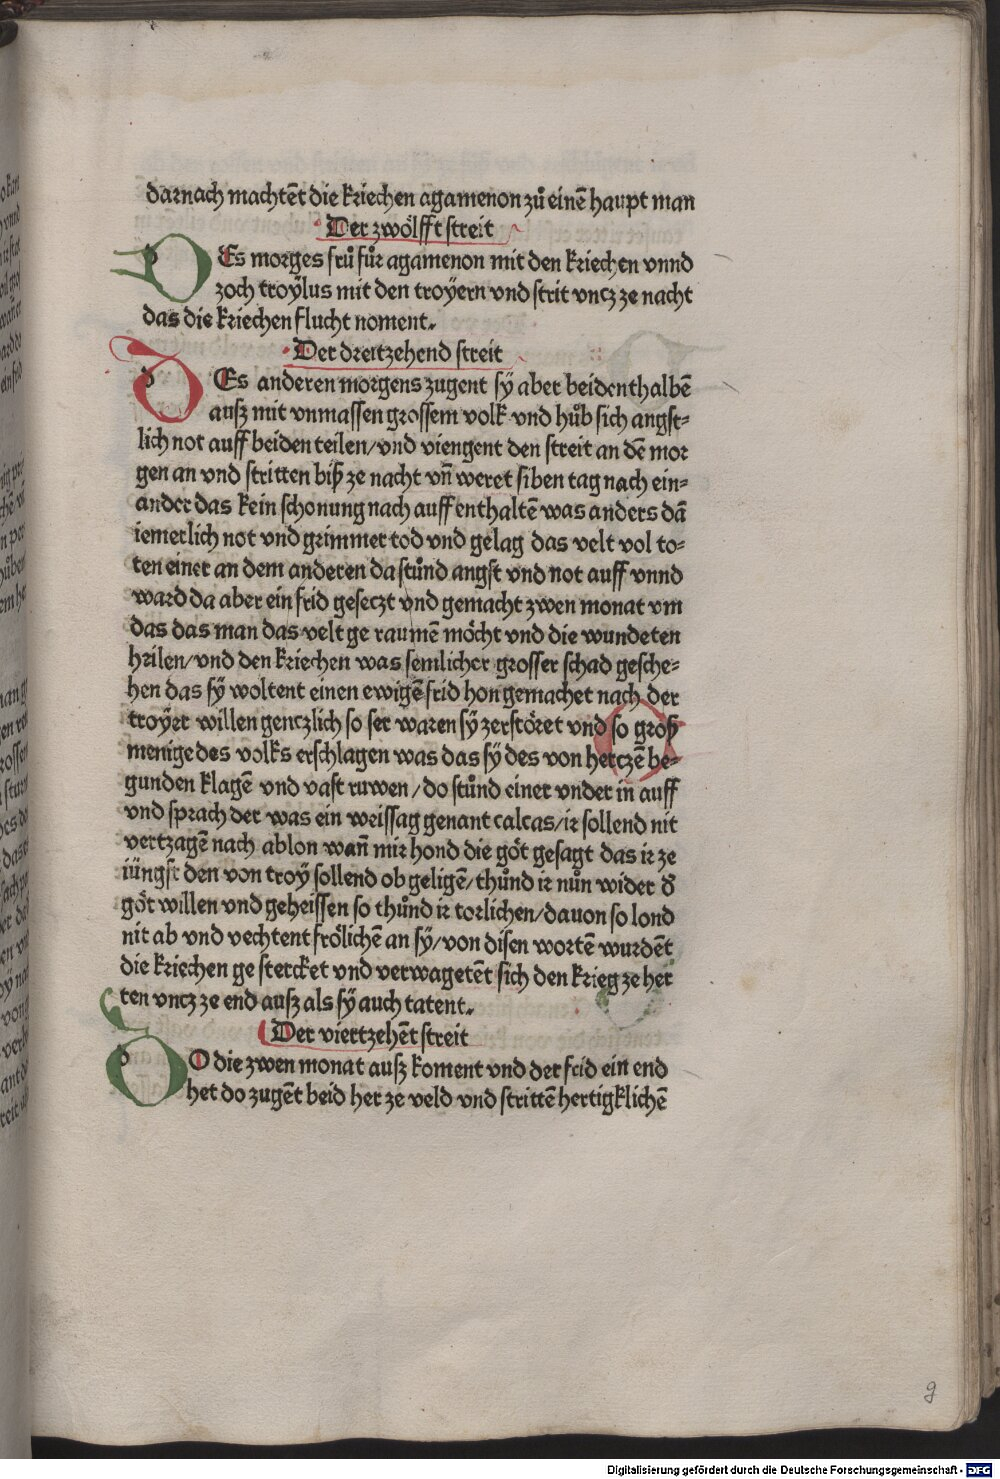 darnach machtẽt die kriechen agamenon zů einẽ haupt man
Der zwölfft streit
DEs morges frů fůr agamenon mit den kriechen vnnd
zoch troÿlus mit den troyern vnd strit vncz ze nacht
das die kriechen flucht noment.
Der dreitzehend streit
DEs anderen morgens zugent sÿ aber beidenthalbẽ
ausz mit vnmassen grossem volk vnd hůb sich angst-
lich not auff beiden teilen/vnd viengent den streit an dẽ mor
gen an vnd stritten biß ze nacht vñ weret siben tag nach ein-
ander das kein schonung nach auff enthaltẽ was anders dã
iemerlich not vnd grimmer tod vnd gelag das velt vol to-
ten einer an dem anderen da stůnd angst vnd not auff vnnd
ward da aber ein frid geseczt vnd gemacht zwen monat vm
das das man das velt ge raumẽ möcht vnd die wundeten
heilen/vnd den kriechen was semlicher grosser schad gesche-
hen das sÿ woltent einen ewigẽ frid hon gemachet nach der
troÿer willen genczlich so ser waren sÿ zerstöret vnd so groß
menige des volks erschlagen was das sÿ des von herczẽ be-
gunden klagẽ vnd vast ruwen/do stůnd einer vnder in auff
vnd sprach der was ein weissag genant calcas/ir sollend nit
vertzagẽ nach ablon wañ mir hond die göt gesagt das ir ze
iüngst den von troÿ sollend ob geligẽ/thůnd ir nůn wider d̕
göt willen vnd geheissen so thůnd ir torlichen/dauon so lond
nit ab vnd vechtent frölichẽ an sÿ/von disen wortẽ wurdẽt
die kriechen ge stercket vnd verwagetẽt sich den krieg ze her
ten vncz ze end ausz als sÿ auch tatent.
Der viertzehẽt streit
DO die zwen monat ausz koment vnd der frid ein end
het do zugẽt beid her ze veld vnd strittẽ hertigklichẽ
g
Digitalisierung gefördert durch die Deutsche Forschungsgemeinschaft - DFG